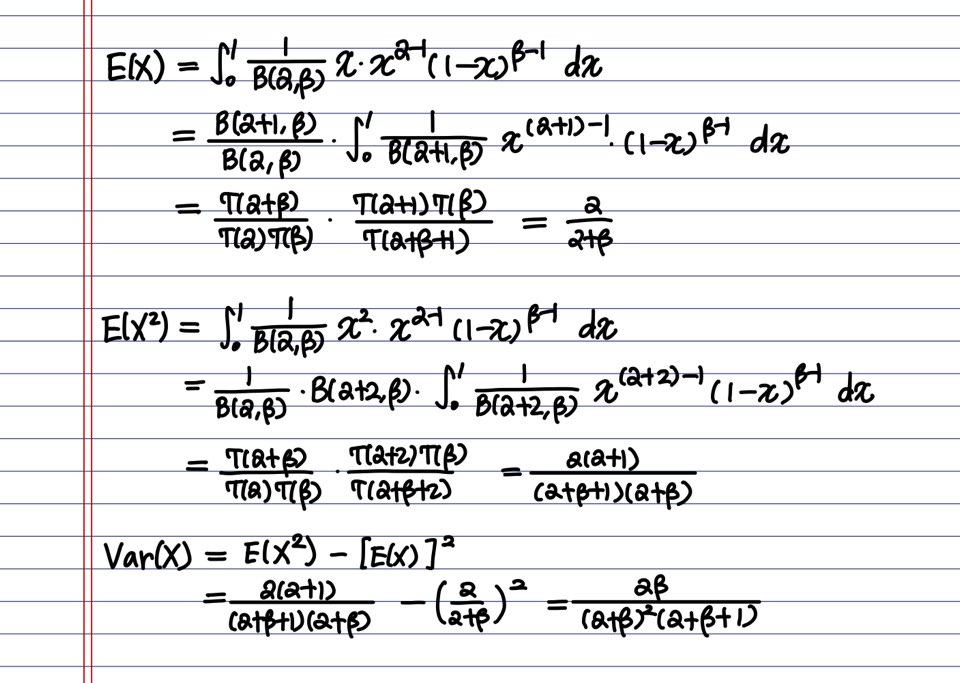 E(X) = ∫₀¹ 1/B(α,β) x · x^(α-1) (1-x)^(β-1) dx
= B(α+1, β)/B(α, β) · ∫₀¹ 1/B(α+1, β) x^((α+1)-1) · (1-x)^(β-1) dx
= Γ(α+β)/Γ(α)Γ(β) · Γ(α+1)Γ(β)/Γ(α+β+1) = α/(α+β)
E(X²) = ∫₀¹ 1/B(α,β) x² · x^(α-1) (1-x)^(β-1) dx
= 1/B(α,β) · B(α+2, β) · ∫₀¹ 1/B(α+2, β) x^((α+2)-1) (1-x)^(β-1) dx
= Γ(α+β)/Γ(α)Γ(β) · Γ(α+2)Γ(β)/Γ(α+β+2) = α(α+1)/(α+β+1)(α+β)
Var(X) = E(X²) - [E(X)]²
= α(α+1)/(α+β+1)(α+β) - (α/(α+β))² = αβ/(α+β)²(α+β+1)